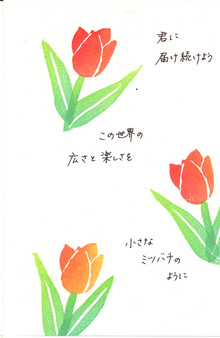 君に
届け続けよう
この世界の
広さと楽しさを
小さな
ミツバチの
ように